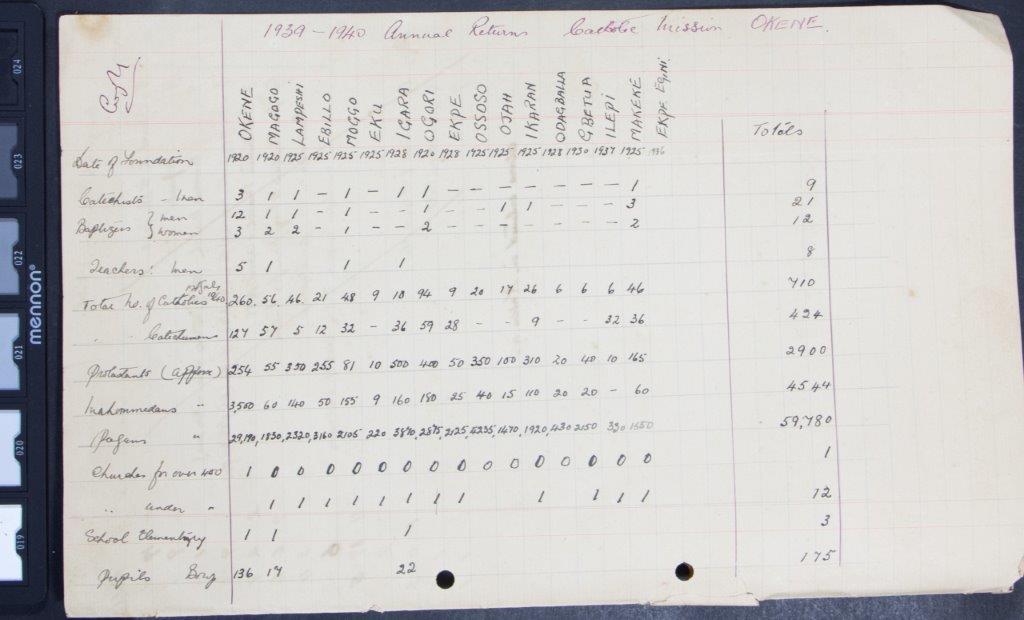 1939-1940 Annual Returns Catholic Mission OKENE.
Copy
OKENE MAGOGO LAMPESHI EBILLO MOGGO EKU IGARA OGORI EKPE OSSOSO OJAH IKARAN ODAGBALLA GBETUA ILEPI MAKEKE EKPE EGINI
Totals
Date of Foundation 1920 1920 1925 1925 1925 1925 1928 1920 1928 1925 1925 1925 1928 1930 1937 1925 1936
Catechists - men 3 1 1 - 1 - 1 1 - - - - - - - 1 9
Baptizers } men 12 1 1 - 1 - - 1 - - 1 1 - - - 3 21
} women 3 2 2 - 1 - - 2 - - - - - - - 2 12
Teachers: men 5 1 1 1 8
Total No. of Catholics 1940 260. 56. 46. 21 48 9 18 94 9 20 17 26 6 6 6 46 710
" " Catechumens 127 57 5 12 32 - 36 59 28 - - 9 - - 32 36 424
Protestants (approx) 254 55 350 255 81 10 500 400 50 350 100 310 20 40 10 165 2900
Mahommedans " 3,500 60 140 50 155 9 160 180 25 40 15 110 20 20 - 60 4544
Pagans " 29,190, 1830, 2320, 3160 2105 220 3870, 2875, 2125, 4235, 1470, 1920, 430 2150 1550 59,780
Churches for over 400 1 0 0 0 0 0 0 0 0 0 0 0 0 0 0 0 1
" under " 1 1 1 1 1 1 1 1 1 1 1 1 12
School Elementary 1 1 1 3
Pupils Boys 136 17 22 175
mennon®
024
023
022
021
020
019